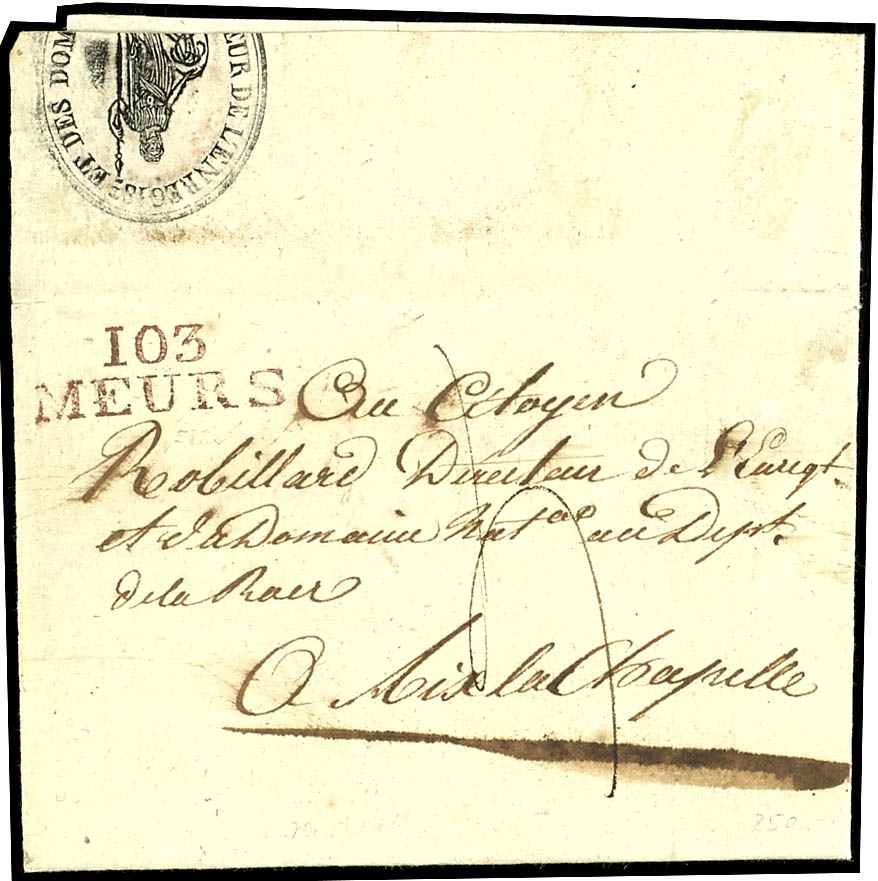 ET DES DOM
EUR DE L'ENREGIS.
103
MEURS
Au Citoyen
Robillard Directeur de l'Enregt.
et de Domaine Nat au Dept.
de la Roer
A Aix la Chapelle
250